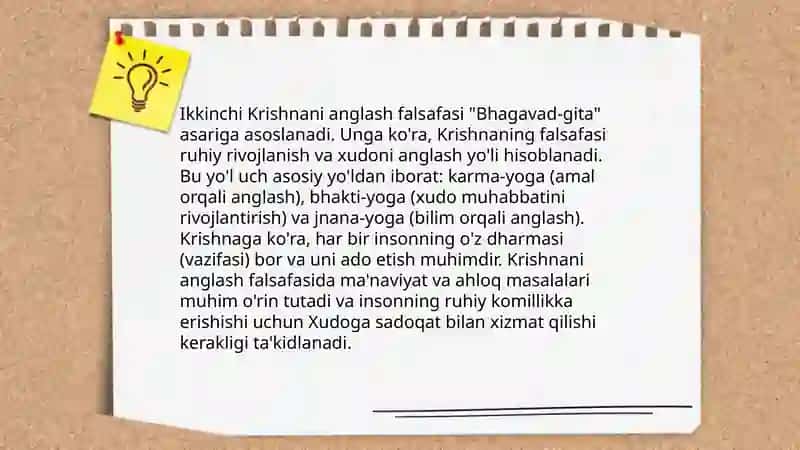 Ikkinchi Krishnani anglash falsafasi "Bhagavad-gita"
asariga asoslanadi. Unga ko'ra, Krishnaning falsafasi
ruhiy rivojlanish va xudoni anglash yo'li hisoblanadi.
Bu yo'l uch asosiy yo'ldan iborat: karma-yoga (amal
orqali anglash), bhakti-yoga (xudo muhabbatini
rivojlantirish) va jnana-yoga (bilim orqali anglash).
Krishnaga ko'ra, har bir insonning o'z dharmasi
(vazifasi) bor va uni ado etish muhimdir. Krishnani
anglash falsafasida ma'naviyat va ahloq masalalari
muhim o'rin tutadi va insonning ruhiy komillikka
erishishi uchun Xudoga sadoqat bilan xizmat qilishi
kerakligi ta'kidlanadi.